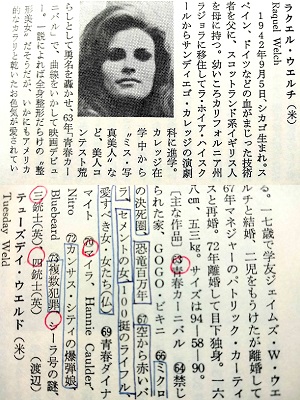 ラクエル・ウエルチ（米）
Raquel Welch
1942年9月5日、シカゴ生まれ。ス
ペイン、ドイツなどの血がまじった技術
者を父に、スコットランド系イギリス人
を母に持つ。幼いころカリフォルニア州
ラジョラに移住してラ・ホイア・ハイスク
ールからサンディエゴ・カレッジの演劇
科に進学。
カレッジ在
学中から
“ミス・写
真美人”な
ど、美人コ
ンテスト荒
らしとして勇名を轟かせ、63年、青春カー
ニバル」で、曲線をいかして映画デビュ
ー。一説によれば全身整形だらけの“整
形美女”だそうだが、いかにもアメリカ
的なカラリと乾いたお色気が愛されてい
る。一七歳で学友ジェイムズ・W・ウエ
ルチと結婚、二児をもうけたが離婚して
67年マネジャーのパトリック・カーティ
スと再婚。72年離婚して目下独身。一六
八cm 五三kg。サイズは94－58－90。
［主な作品］63青春カーニバル 64禁じ
られた家、GOGO・ビキニ 66ミクロ
の決死圏、恐竜百万年 67空から赤いバ
ラ、セメントの女、100挺のライフル、
愛すべき女・女たち(仏) 69青春ダイナ
マイト 70マイラ、Hannie Caulder
Nitro 72カンサス・シティの爆弾娘、
Bluebeard 73複数犯罪、シーラ号の謎、
三銃士(英)、四銃士(英) （渡辺）
テューズデイ・ウエルド（米）
Tuesday Weld